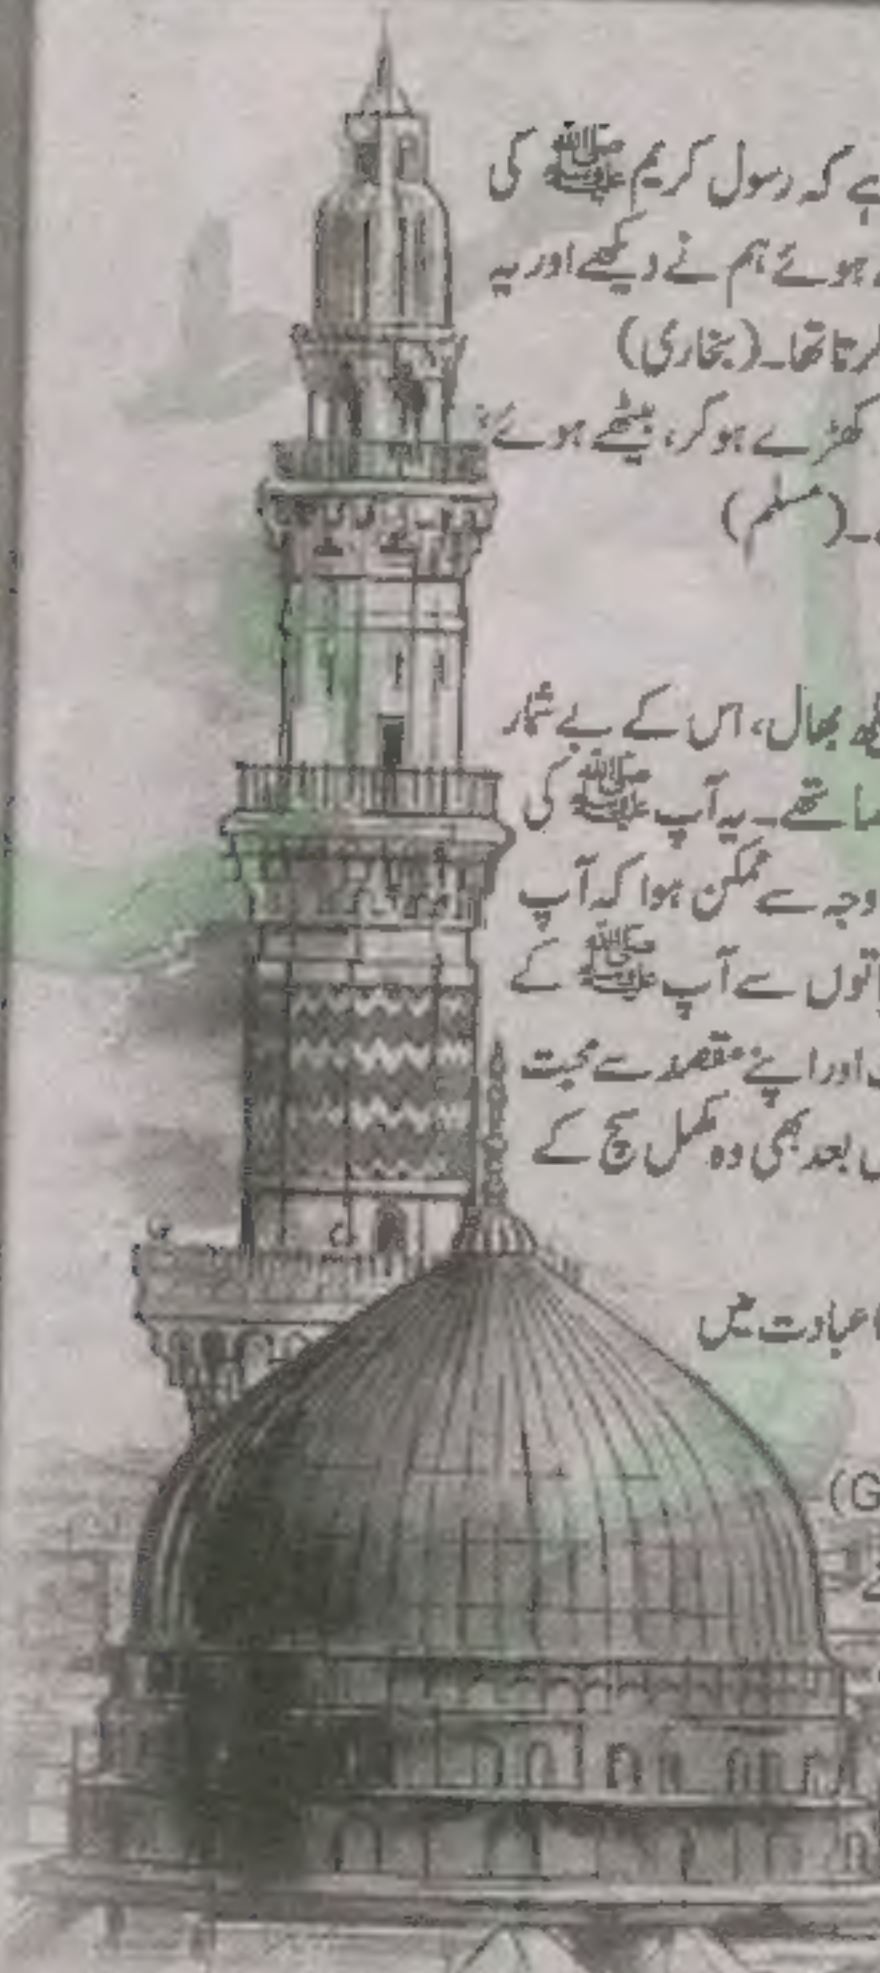 ہے کہ رسول کریم ﷺ کی
ہوئے ہم نے دیکھے اور یہ
کرتا تھا۔ (بخاری)
کھڑے ہوکر، بیٹھے ہوئے
۔ (مسلم)
بھال، اس کے بے شمار
تھے۔ یہ آپ ﷺ کی
وجہ سے ممکن ہوا کہ آپ
سے آپ ﷺ کے
اور اپنے مقصد سے محبت
بعد بھی وہ مکمل سچ کے
عبادت میں
(G